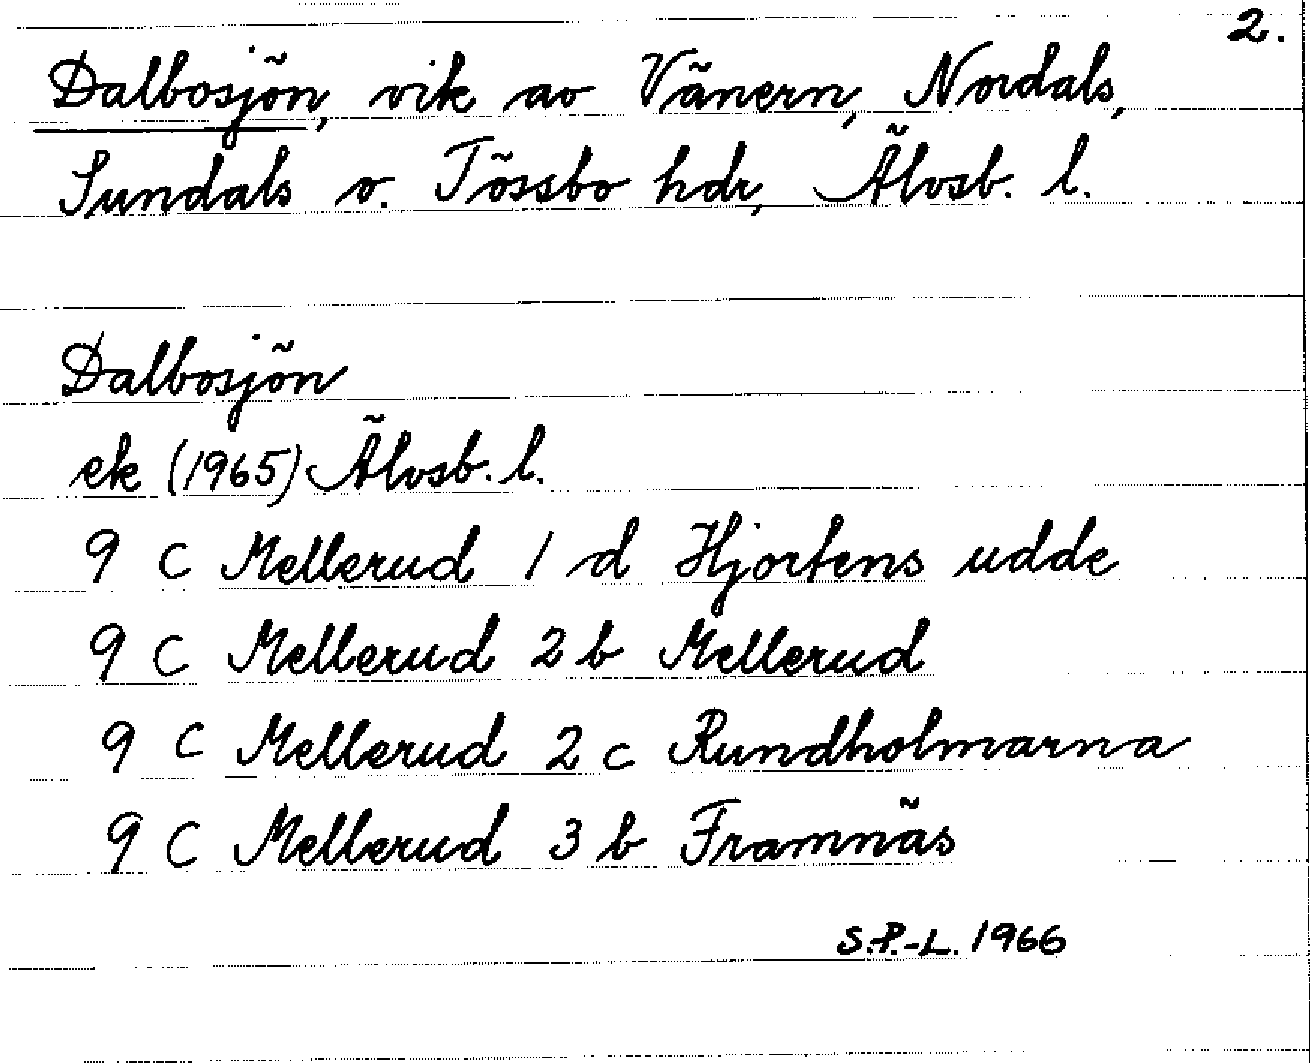 2.
Dalbosjön, vik av Vänern, Nordals,
Sundals o. Tössbo hdr, Älvsb. l.
Dalbosjön
ek (1965) Älvsb. l.
9 C Mellerud 1 d Hjortens udde
9 C Mellerud 2 b Mellerud
9 C Mellerud 2 c Rundholmarna
9 C Mellerud 3 b Framnäs
S.P.-L. 1966